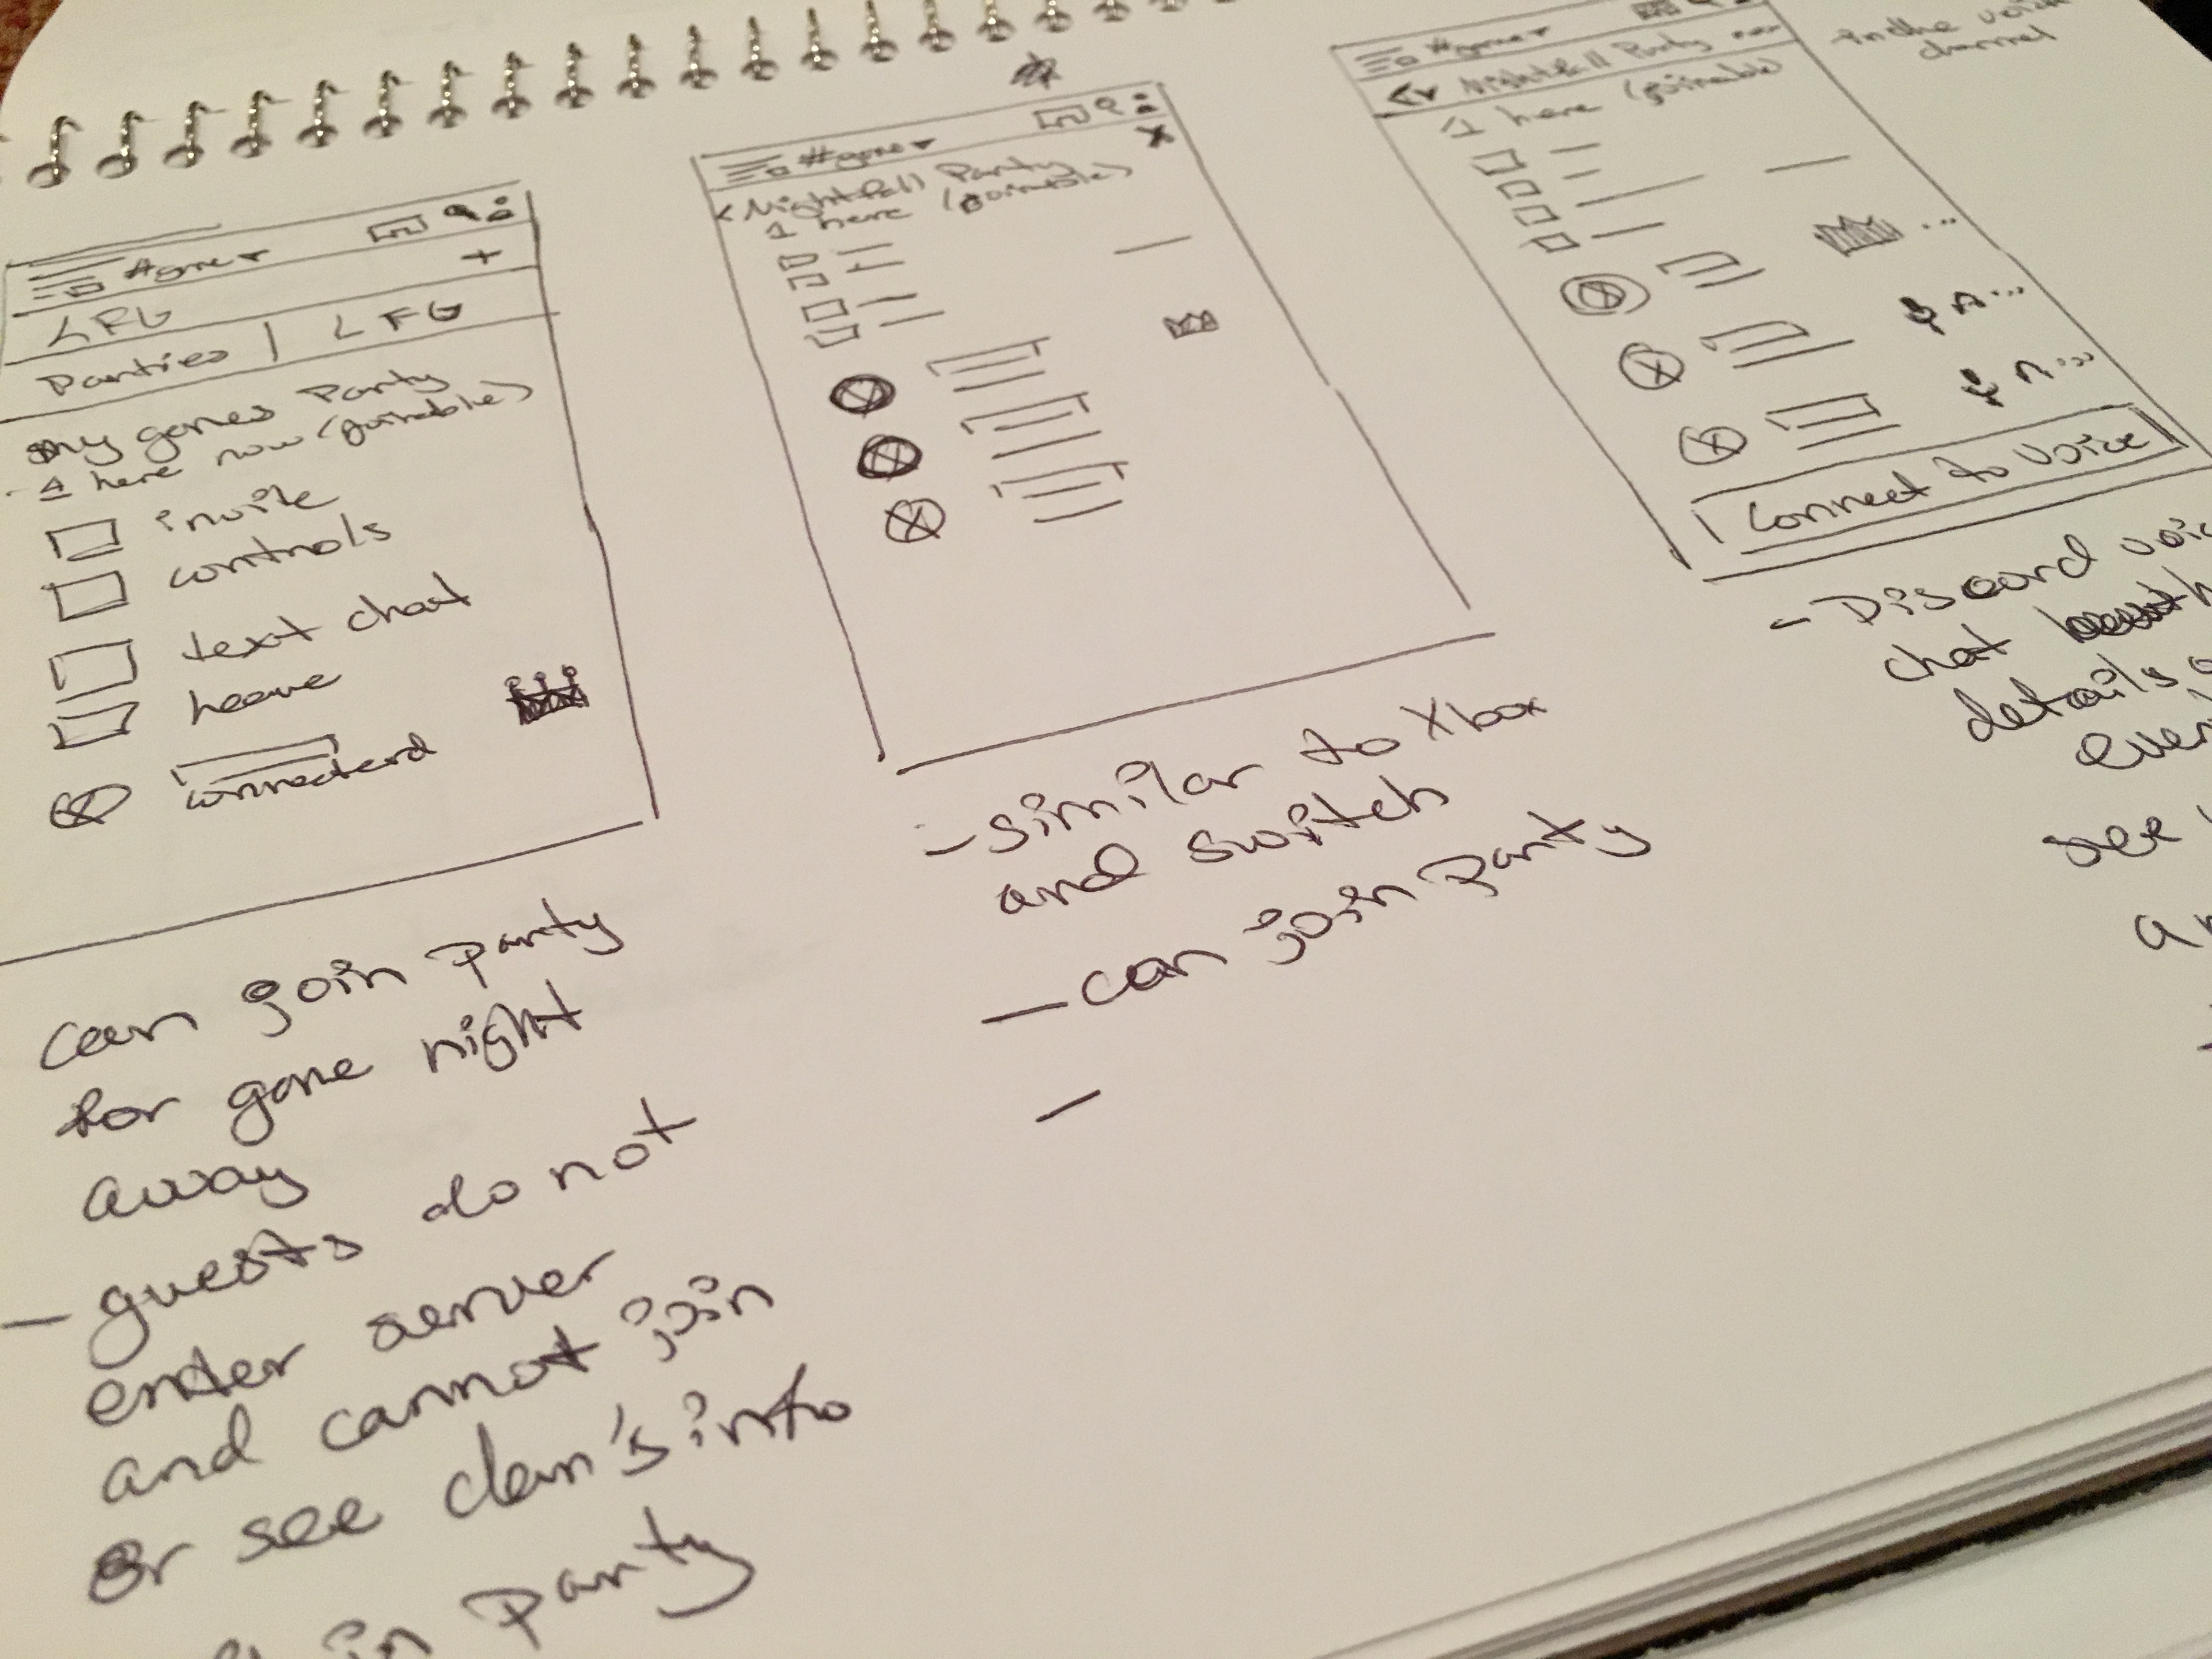 #game
LFG +
Parties | LFG
my games Party
1 here now (joinable)
invite
controls
text chat
leave
connected
can join party
for game night
away
- guests do not
enter server
and cannot join
or see clan's info
in party
#game
X
< Nightfall Party
1 here (joinable)
- similar to Xbox
and switch
- can join party
-
in the voice
channel
#game
Nightfall Party
1 here (joinable)
Connect to voice
- Discord
chat
details
see